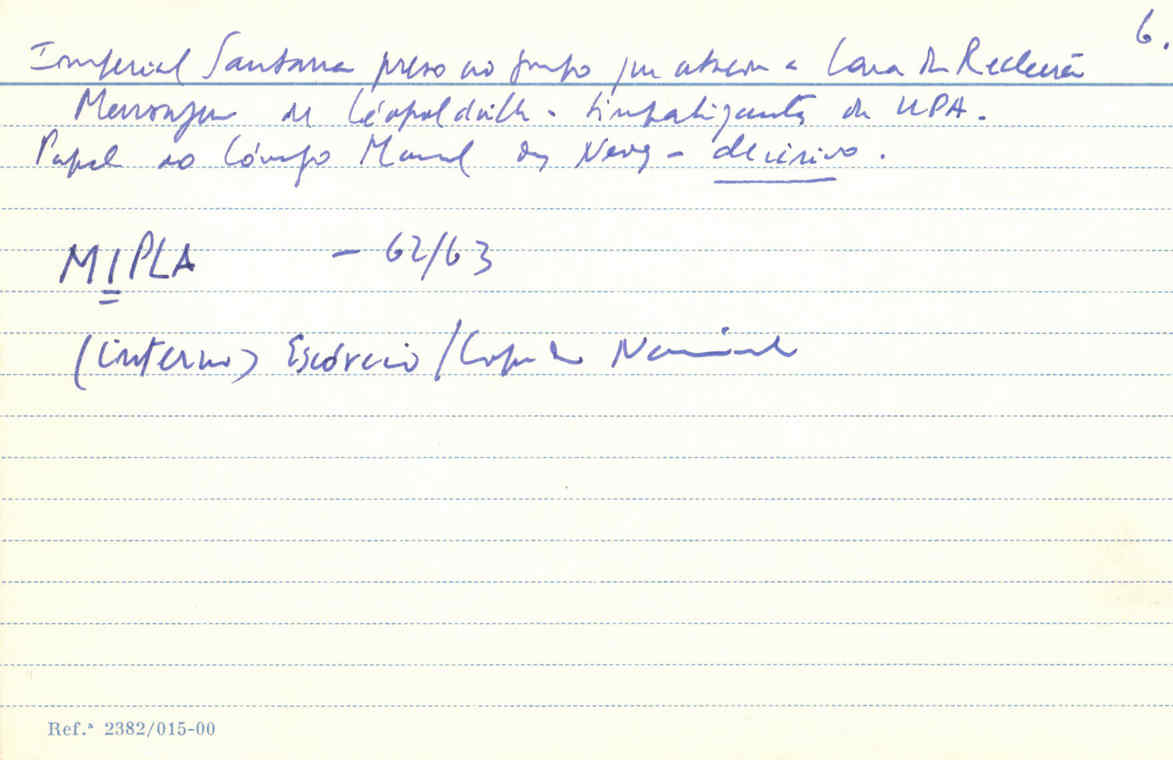 6.
Imperial Santana preso no grupo que atacou a Casa de Reclusão
Mensagem de Léopoldville - simpatizantes da UPA.
Papel do Cónego Manuel das Neves - decisivo.
MIPLA - 62/63
(interno) Escórcio /
Ref.ª 2382/015-00